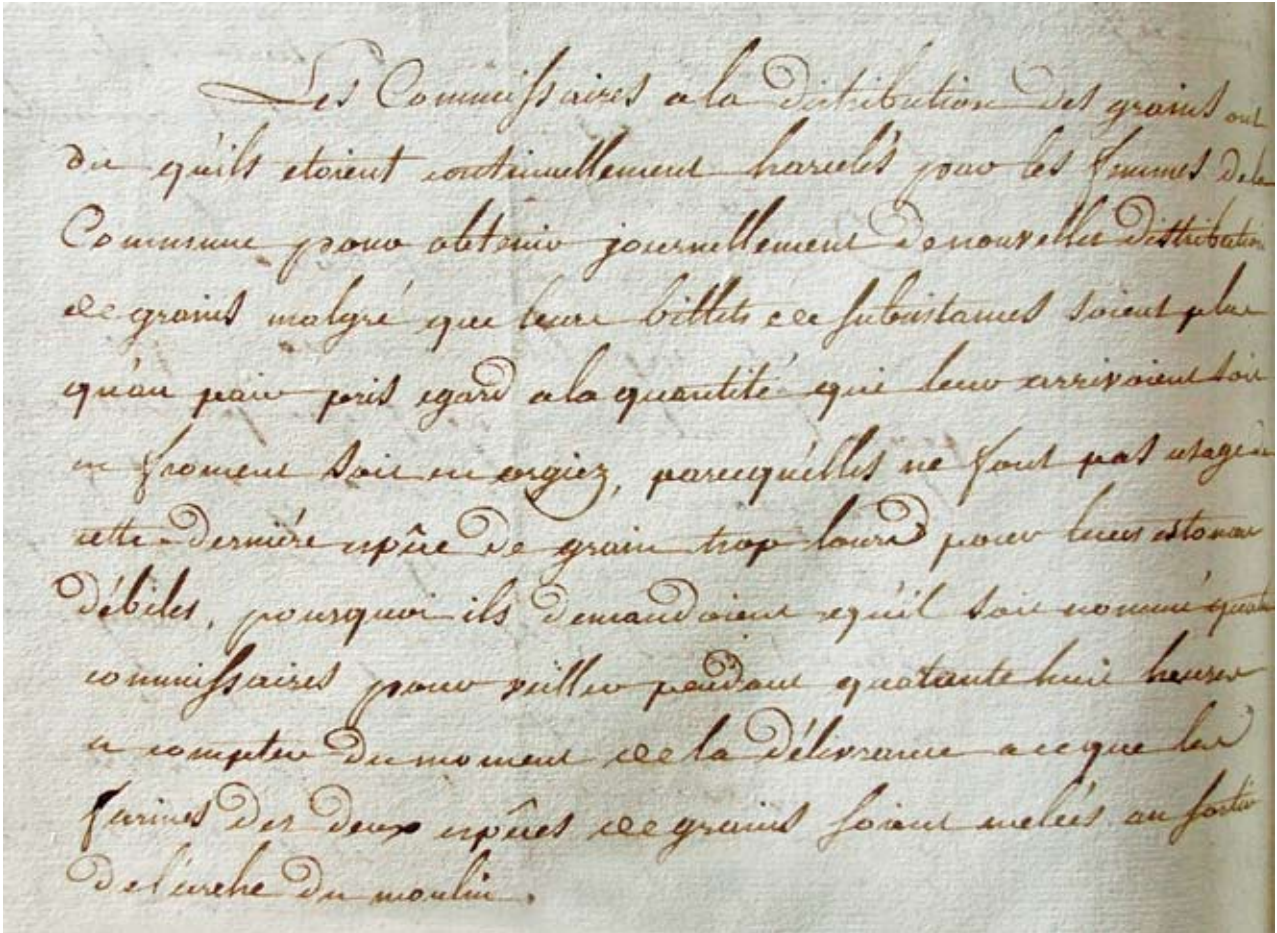 Les Commissaires a la distribution des grains ont
dit qu'ils etoient continuellement harcelés par les femmes de la
Commune pour obtenir journellement de nouvelles distribution
de grains malgré que leurs billets de subsistances soient plus
qu'au pair pris egard a la quantité qui leur arrivoient soit
en froment soit en orgiez, parcequ'elles ne font pas usage de
cette derniére espêce de grain trop lourd pour leurs estomac
débiles, pourquoi ils demandoient qu'il soit nommé quatre
commissaires pour veiller pendant quatante huit heures
a compter du moment de la délivrance a ce que les
farines des deux espêces de grains soient melés au sortir
de l'arche du moulin.